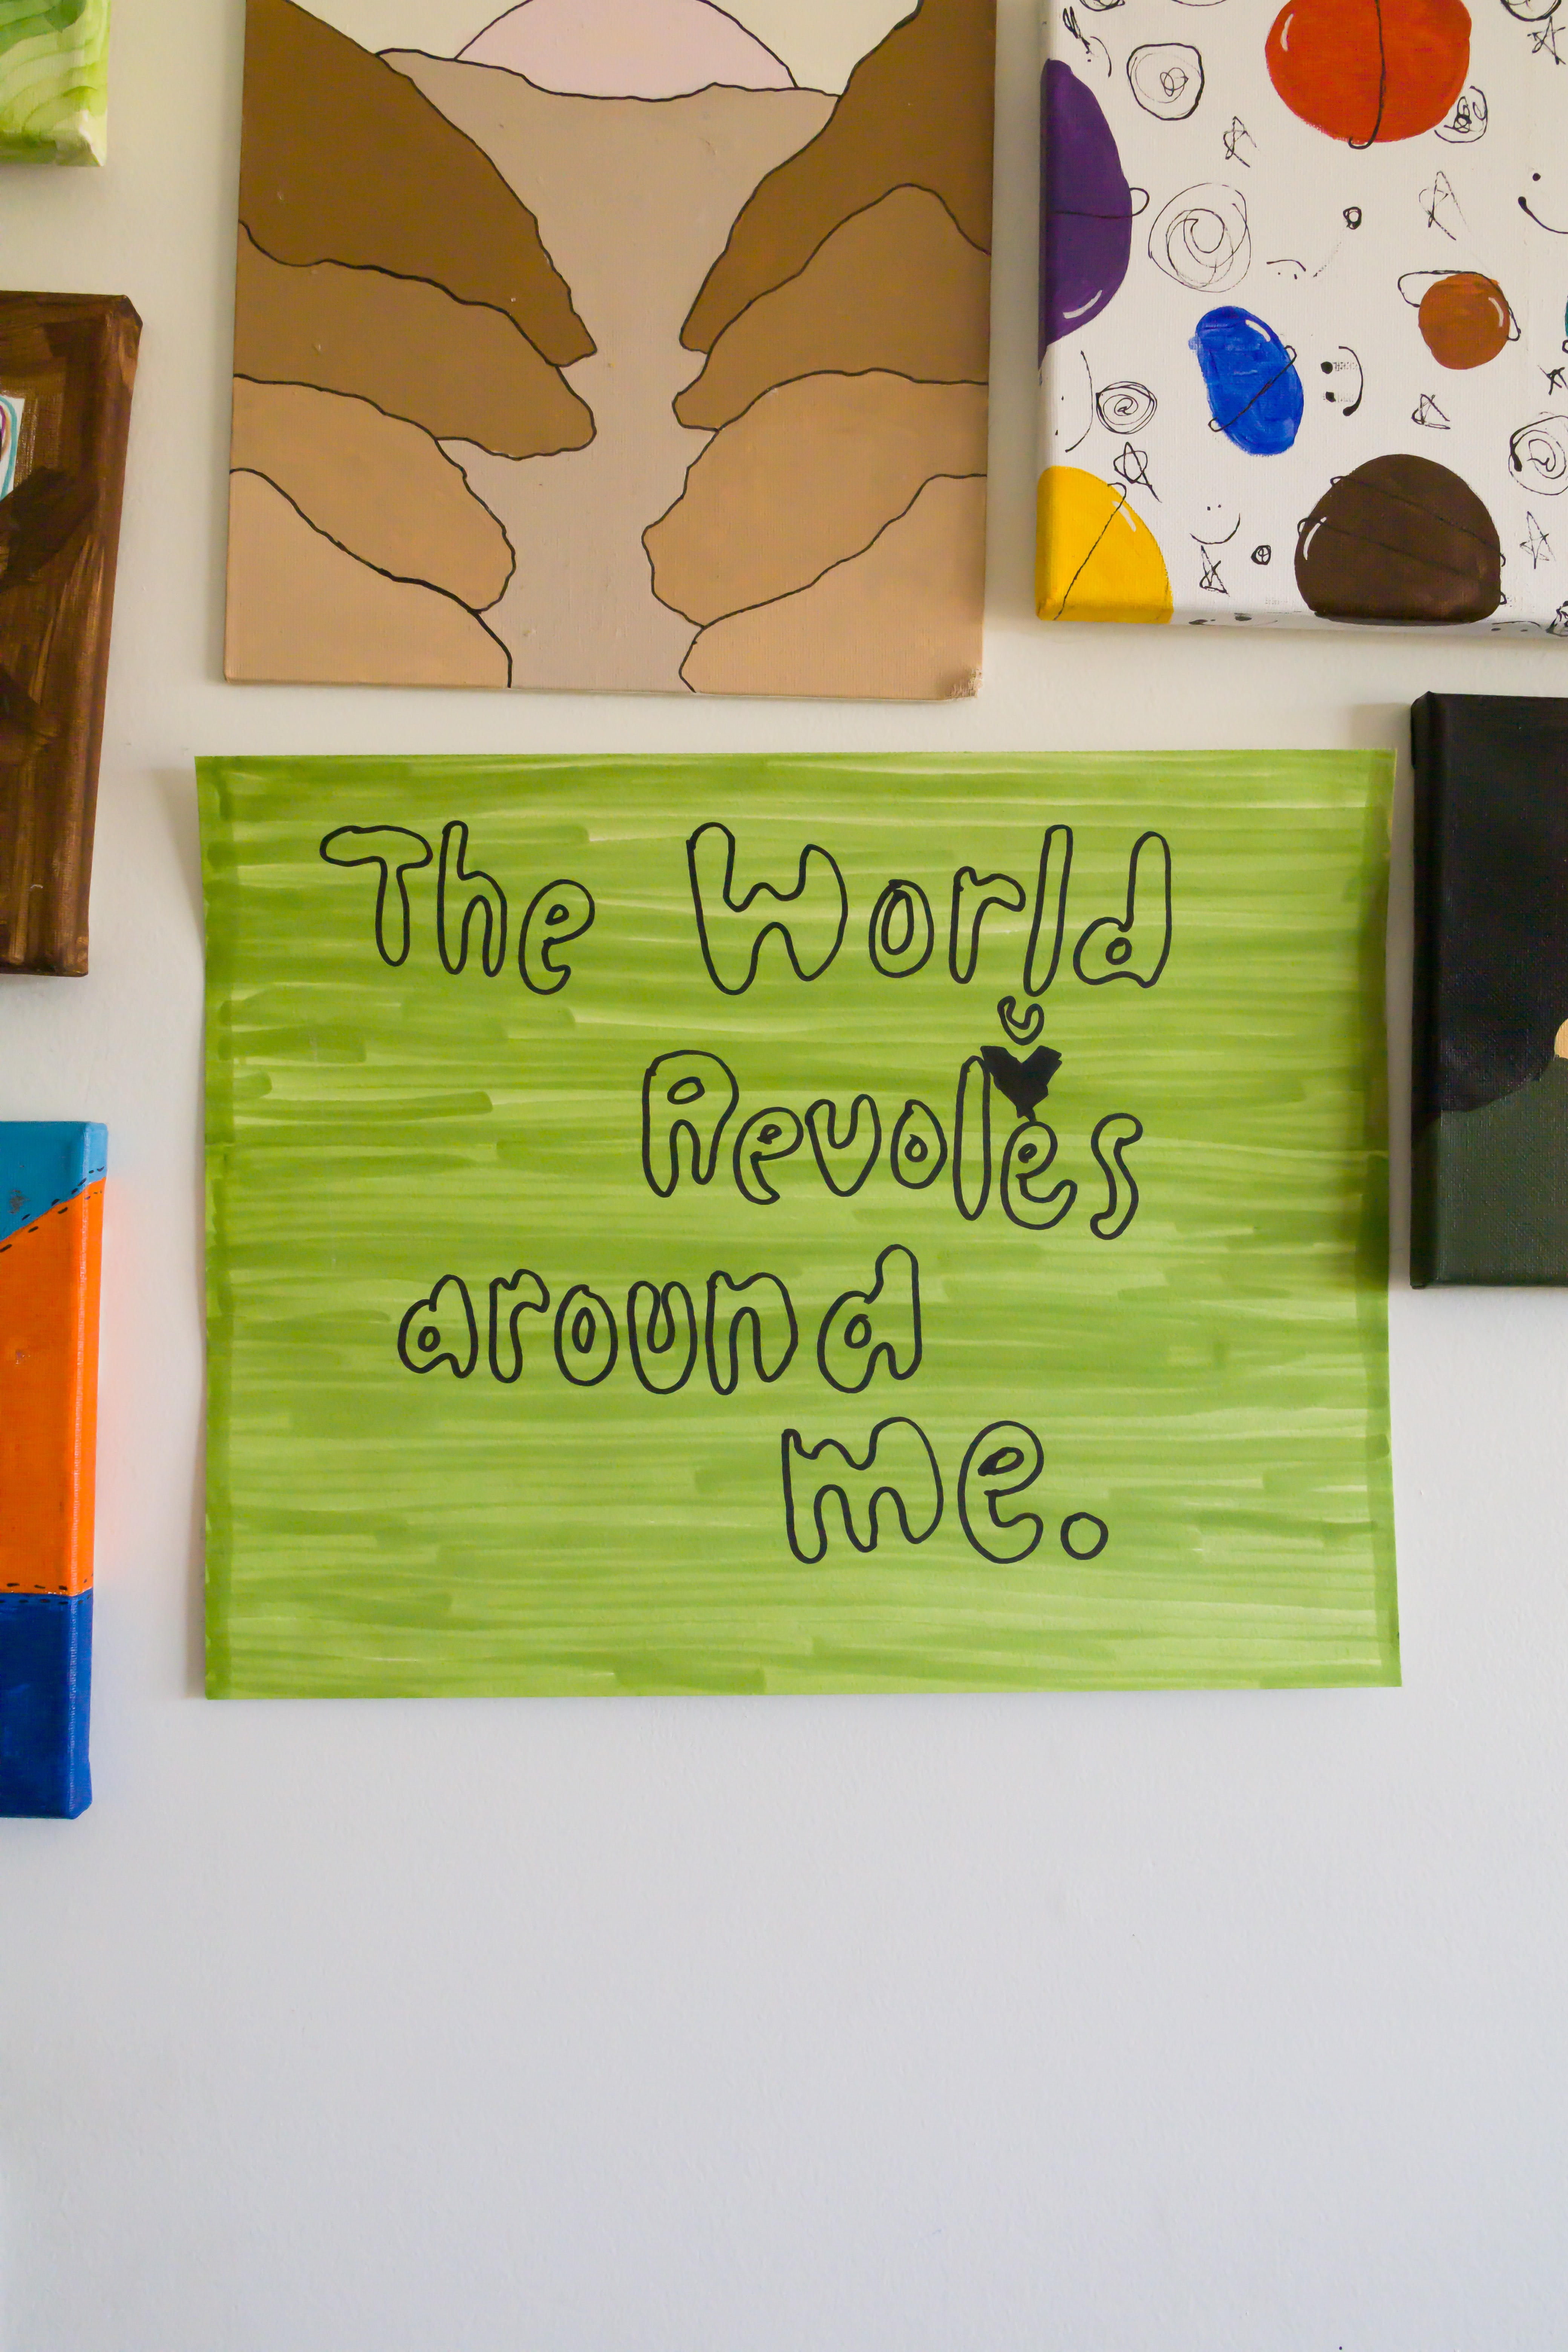 The World
Revolves
around
me.